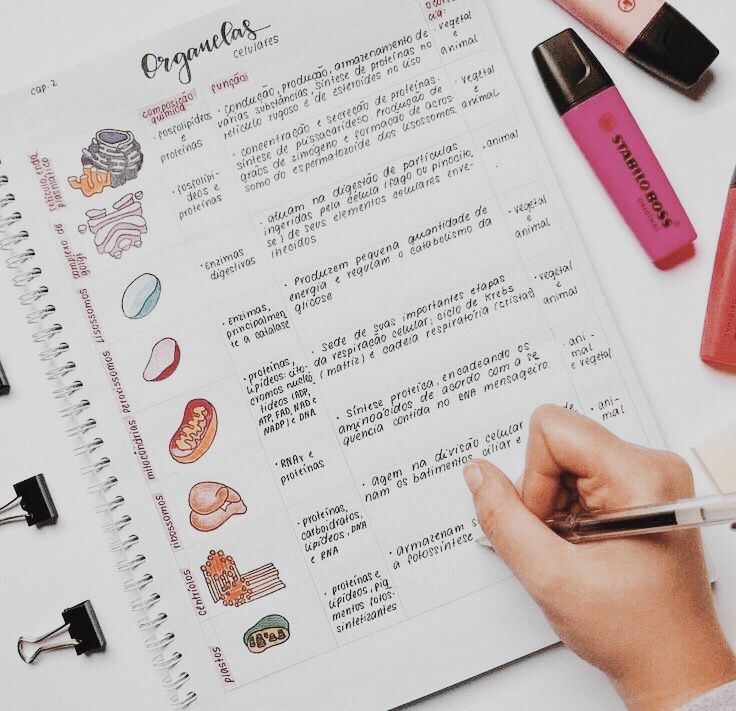 cap. 2
Organelas
celulares
composição
química
função
vegetal
e
animal
retículo
plasmático
· fosfolipídeos
e
proteínas
· condução, produção, armazenamento de
várias substâncias, síntese de proteínas no
retículo rugoso e de esteroides no liso
complexo de
golgi
· fosfolipí-
deos e
proteínas
· concentração e secreção de proteínas.
produção de
grãos de zimogeno e formação de acros-
somo do espermatozoide dos lisossomos.
· vegetal
e
animal
lisossomos
· Enzimas
digestivas
· atuam na digestão de partículas
ingeridas pela célula (fago ou pinocito
se) de seus elementos celulares enve-
lhecidos
· animal
Peroxissomos
· Enzimas,
principalmen
te a catalase
· Produzem pequena quantidade de
energia e regulam o catabolismo da
glicose
· vegetal
e
animal
mitocôndrias
· proteínas,
lipídeos, cito-
cromos nucleo
tídeos (ADP,
ATP, FAD, NAD e
NADP) e DNA
· sede de suas importantes etapas
da respiração celular: ciclo de Krebs
(matriz) e cadeia respiratória (cristas)
· vegetal
e
animal
ribossomos
· RNAr e
proteínas
· síntese proteica, encadeando os
aminoácidos de acordo com a se
quência contida no RNA mensageiro
· ani-
mal
e vegetal
Centríolos
· proteínas,
carboidratos,
lipídeos, DNA
e RNA
· agem na divisão celular
nam os batimentos ciliar e
· ani-
mal
Plastos
· proteínas e
lipídeos, pig
mentos fotos-
sintetizantes
· armazenam
a fotossíntese
STABILO BOSS
ORIGINAL